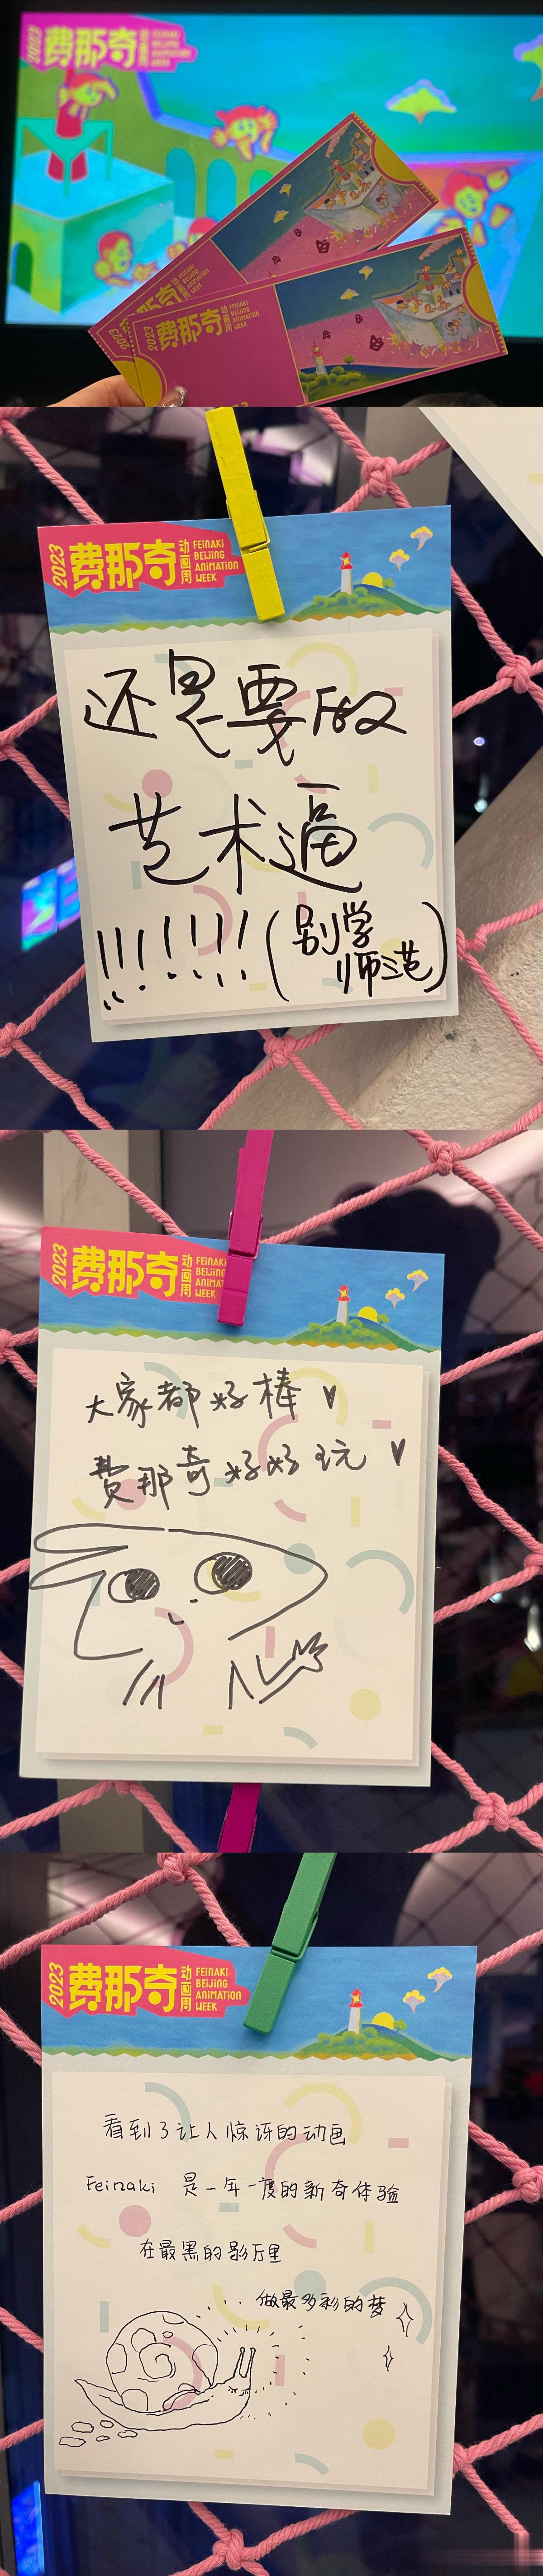 2023
费那奇
动画周
FEINAKI
BEIJING
ANIMATION
WEEK
费那奇
动画周
FEINAKI
BEIJING
ANIMATION
WEEK
2023
费那奇
动画周
FEINAKI
BEIJING
ANIMATION
WEEK
2023
费那奇
动画周
FEINAKI
BEIJING
ANIMATION
WEEK
还是要做
艺术逼
!!!!!!!(别学
师范)
2023
费那奇
动画周
FEINAKI
BEIJING
ANIMAT
WEEK
大家都好棒 ♥
费那奇好好玩 ♥
2023
费那奇
动画周
FEINAKI
BEIJING
ANIMATION
WEEK
看到了让人惊讶的动画
Feinaki 是一年一度的新奇体验
在最黑的影厅里
做最多彩的梦